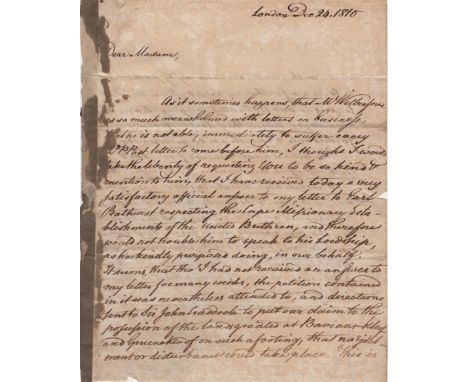 London Dec 24. 1810
Dear Madam,
As it sometimes happens, that Mr Wilberforce
is so much overwhelmed with letters on business,
that he is not able, immediately to suffer every
letter to come before him, I thought I would
take the liberty of requesting You to be so kind to
mention to him, that I have received today a very
satisfactory official answer to my letter to Earl
Bathurst respecting the Cape Missionary Esta-
blishments of the United Brethren, and therefore
would not trouble him to speak to his Lordship,
as he kindly purposed doing, in our behalf.
It seems, that tho' I had not received an answer to
my letter for many weeks, the petition contained
in it was nevertheless attended to, and directions
sent to Sir John Cradock to put our claim to the
possession of the land granted at Bavians-Kloof
and Gruenekloof on such a footing, that no
or disturbance could take place. This is